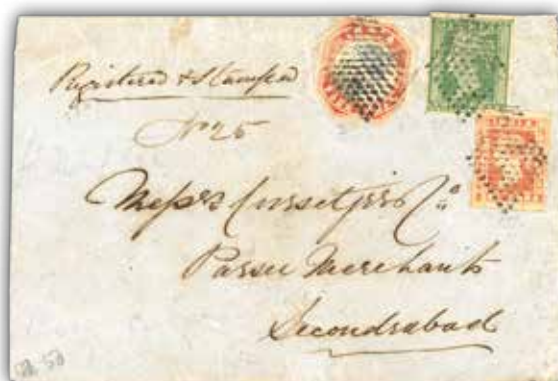 Registered & Stamped
No 25
Messrs Cursetji & Co
Parsee Merchants
Secondrabad